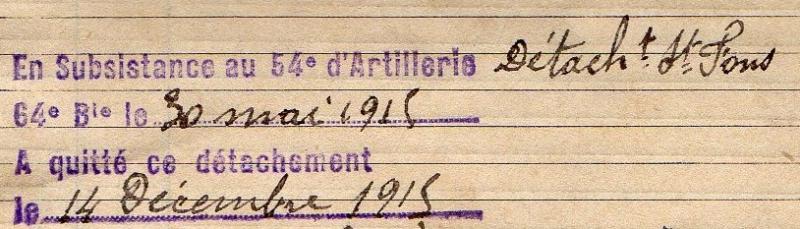 En Subsistance au 54e d'Artillerie Détacht St Fons
64e Bie le 30 mai 1915
A quitté ce détachement
le 14 Décembre 1915